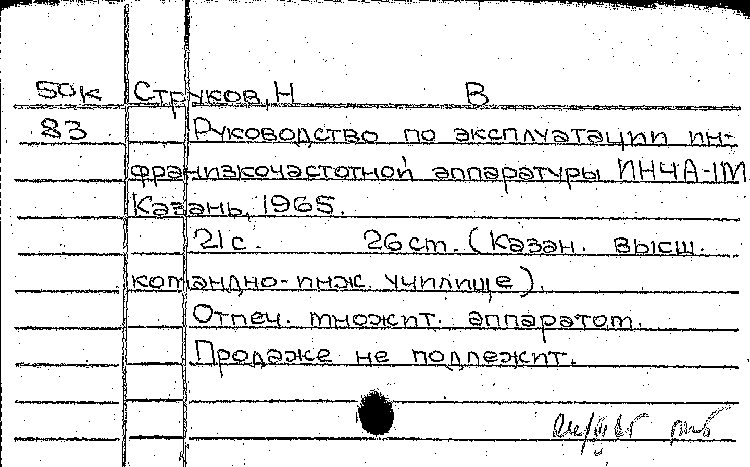 50к Струков, Н В
83 Руководство по эксплуатации ин-
франизкочастотной аппаратуры ИНЧА-1М
Казань, 1965.
21с. 26см. (Казан. высш.
командно-инж. училище).
Отпеч. множит. аппаратом.
Продаже не подлежит.